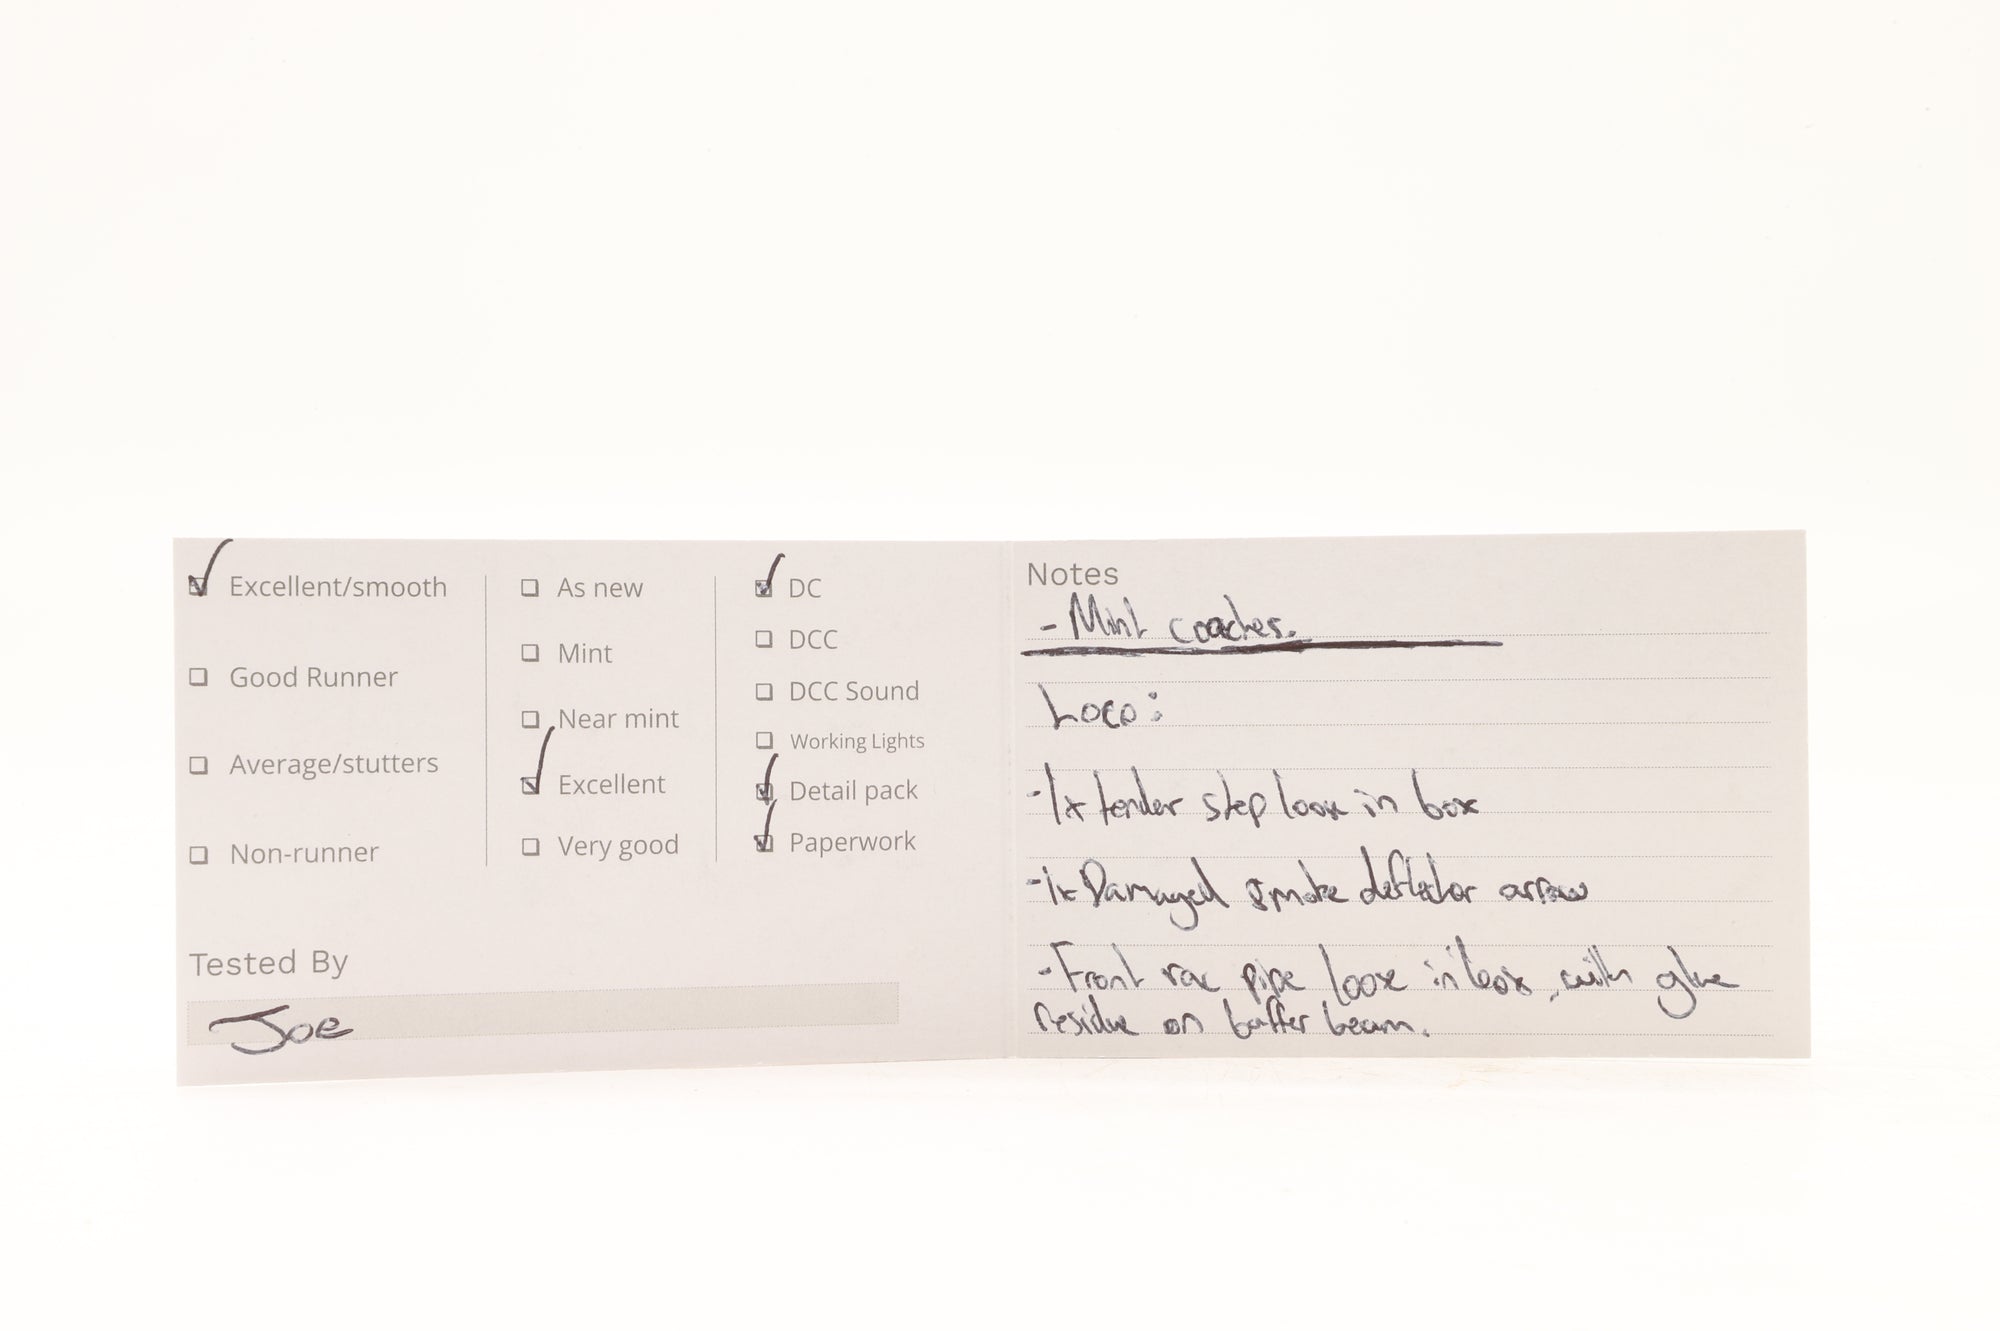 Excellent/smooth
Good Runner
Average/stutters
Non-runner
As new
Mint
Near mint
Excellent
Very good
DC
DCC
DCC Sound
Working Lights
Detail pack
Paperwork
Tested By
Joe
Notes
- Mint coaches.
Loco:
- 1x tender step loose in box
- 1x Damaged smoke deflector arrow
- Front vac pipe loose in box, with glue
residue on buffer beam.